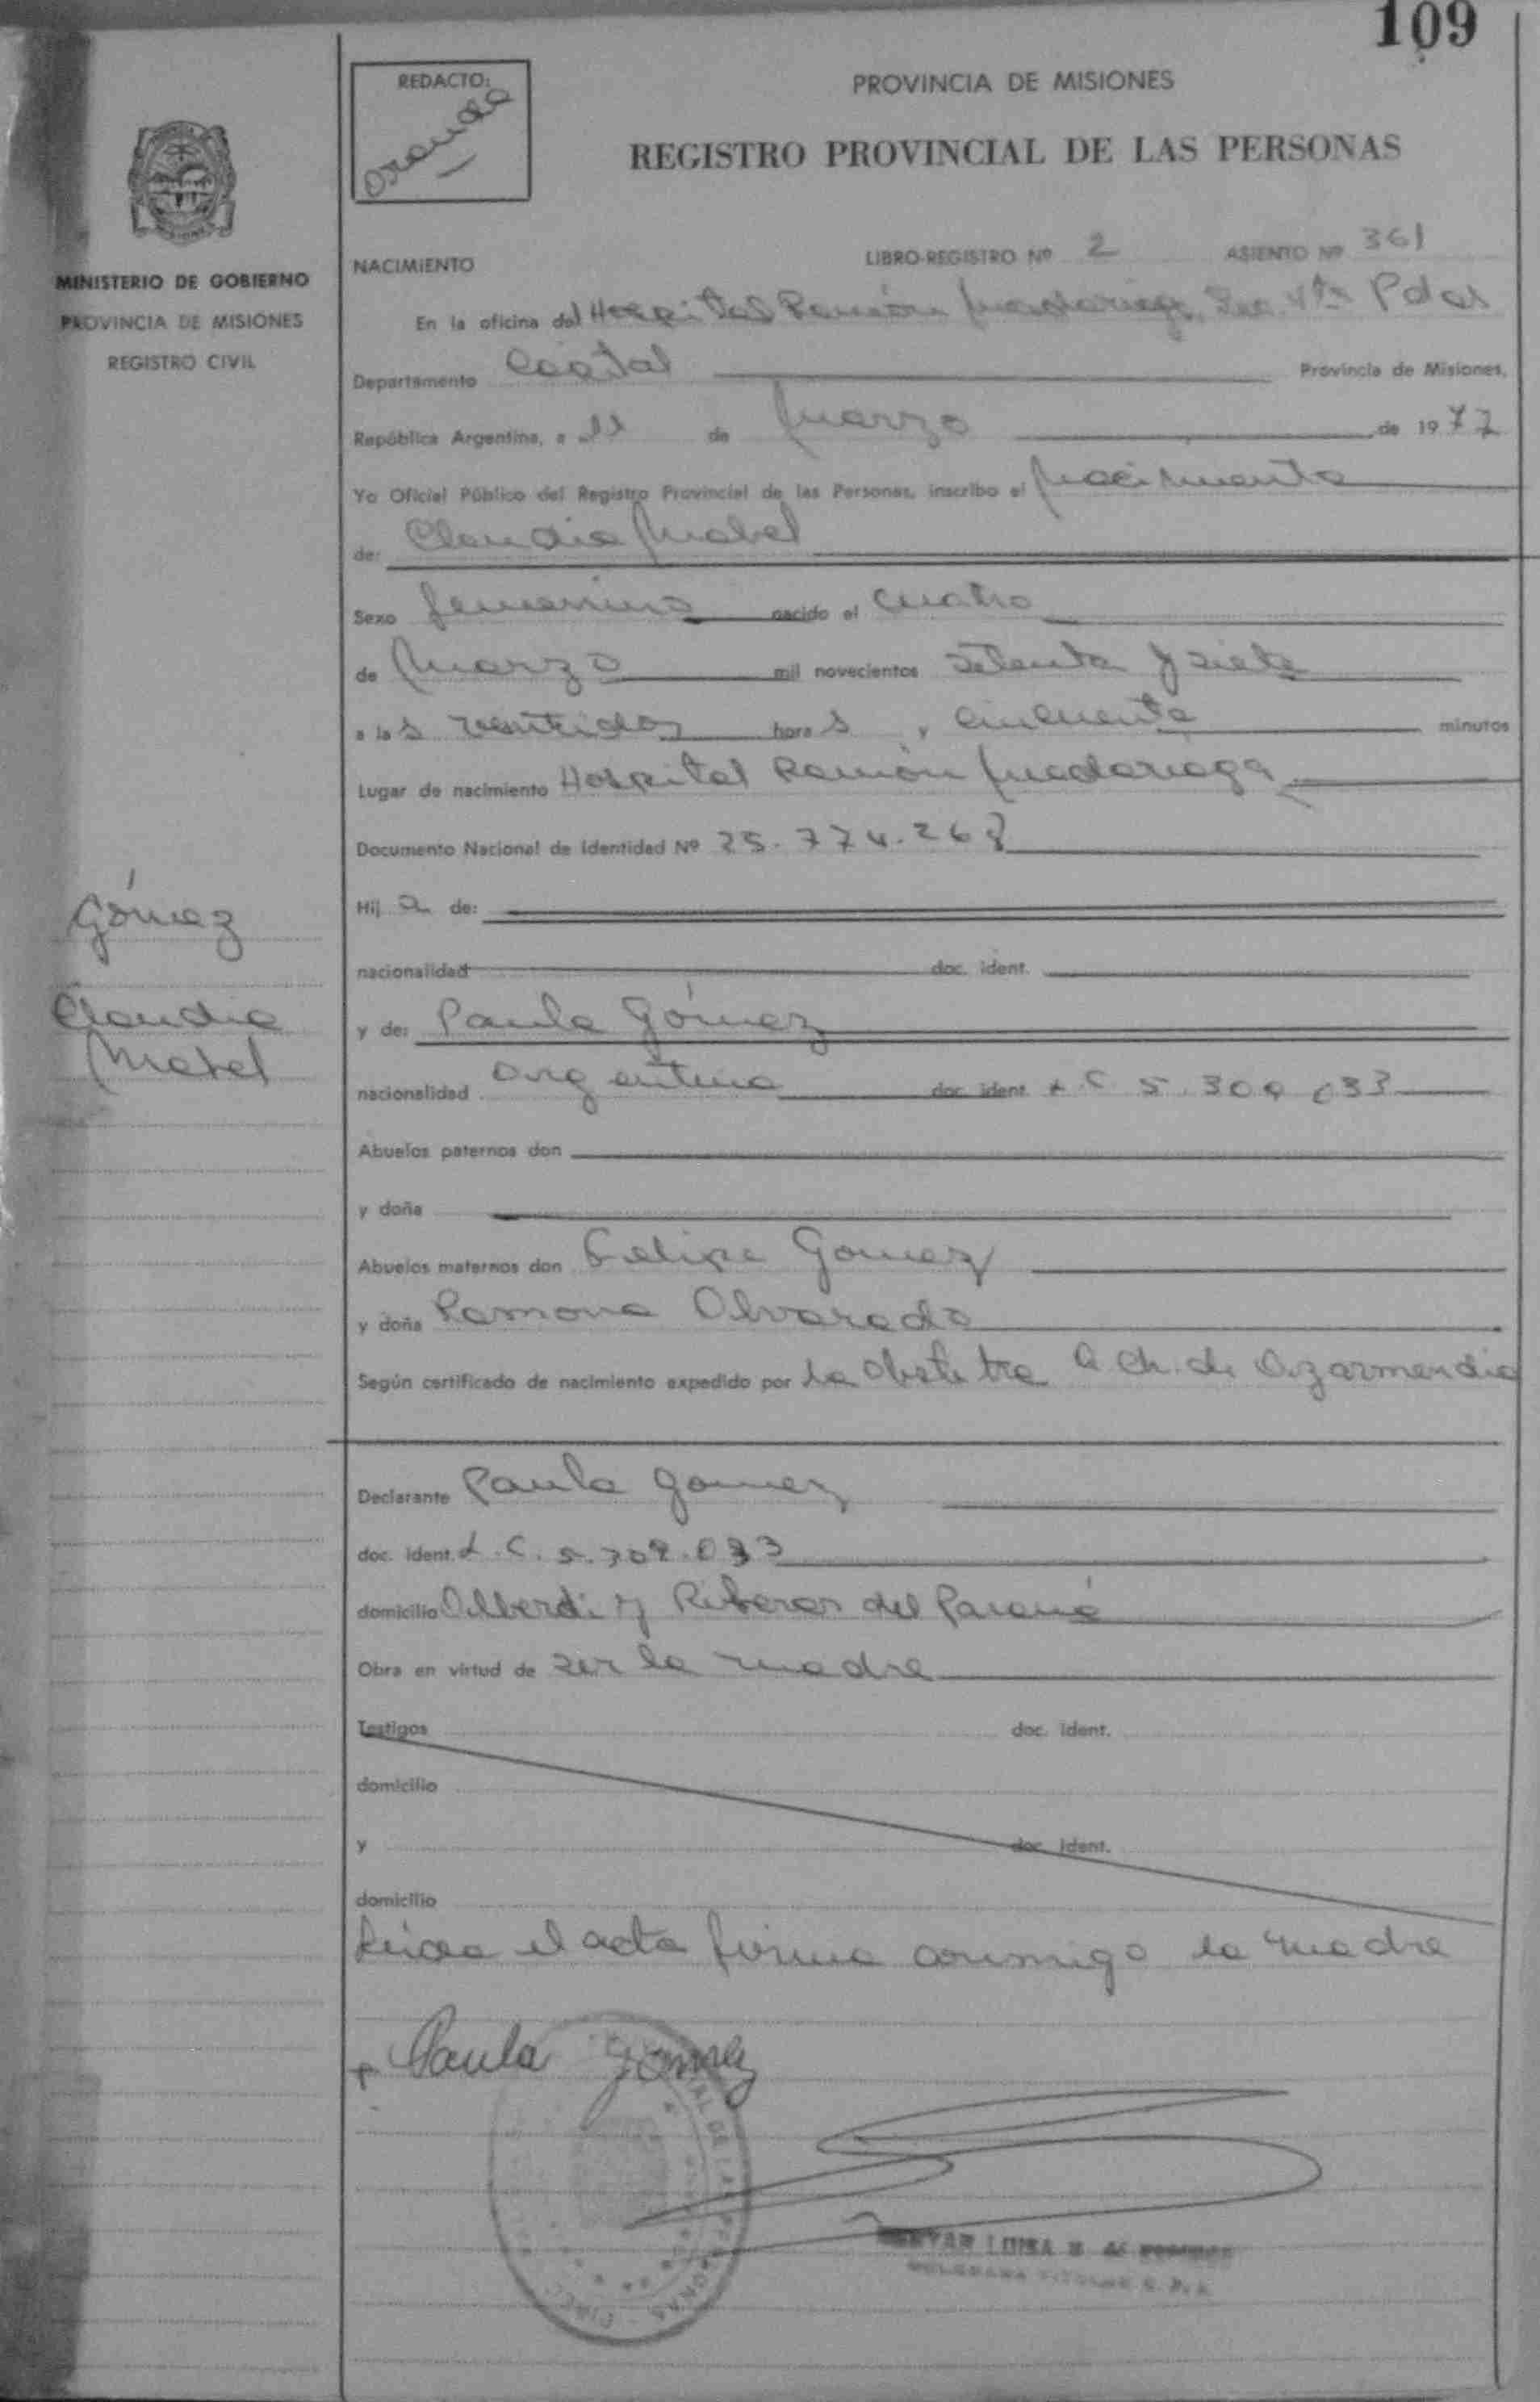 109
REDACTO:
PROVINCIA DE MISIONES
REGISTRO PROVINCIAL DE LAS PERSONAS
MINISTERIO DE GOBIERNO
PROVINCIA DE MISIONES
REGISTRO CIVIL
NACIMIENTO LIBRO-REGISTRO Nº 2 ASIENTO Nº 361
En la oficina del Hospital Ramón Madariaga Pdas
Departamento Capital Provincia de Misiones,
República Argentina, a 11 de Marzo de 1977
Yo Oficial Público del Registro Provincial de las Personas, inscribo el Nacimiento
de: Claudia Mabel
Sexo femenino nacido el cuatro
de Marzo mil novecientos setenta y siete
a las veintidos horas y cincuenta minutos
Lugar de nacimiento Hospital Ramón Madariaga
Documento Nacional de Identidad Nº 25.774.268
Hija de:
nacionalidad doc. ident.
y de: Paula Gómez
nacionalidad argentina doc. ident. L.C 5.309.033
Gómez
Claudia
Mabel
Abuelos paternos don
y doña
Abuelos maternos don Felipe Gomez
y doña Ramona Alvarado
Según certificado de nacimiento expedido por La Obstetra A Ch. de Azarmendia
Declarante Paula Gomez
doc. ident. L.C. 5.309.033
domicilio Alberdi y Riberas del Paraná
Obra en virtud de ser la madre
Testigos doc. ident.
domicilio
y doc. ident.
domicilio
Leída el acta firma conmigo la madre
Paula Gomez
LUISA